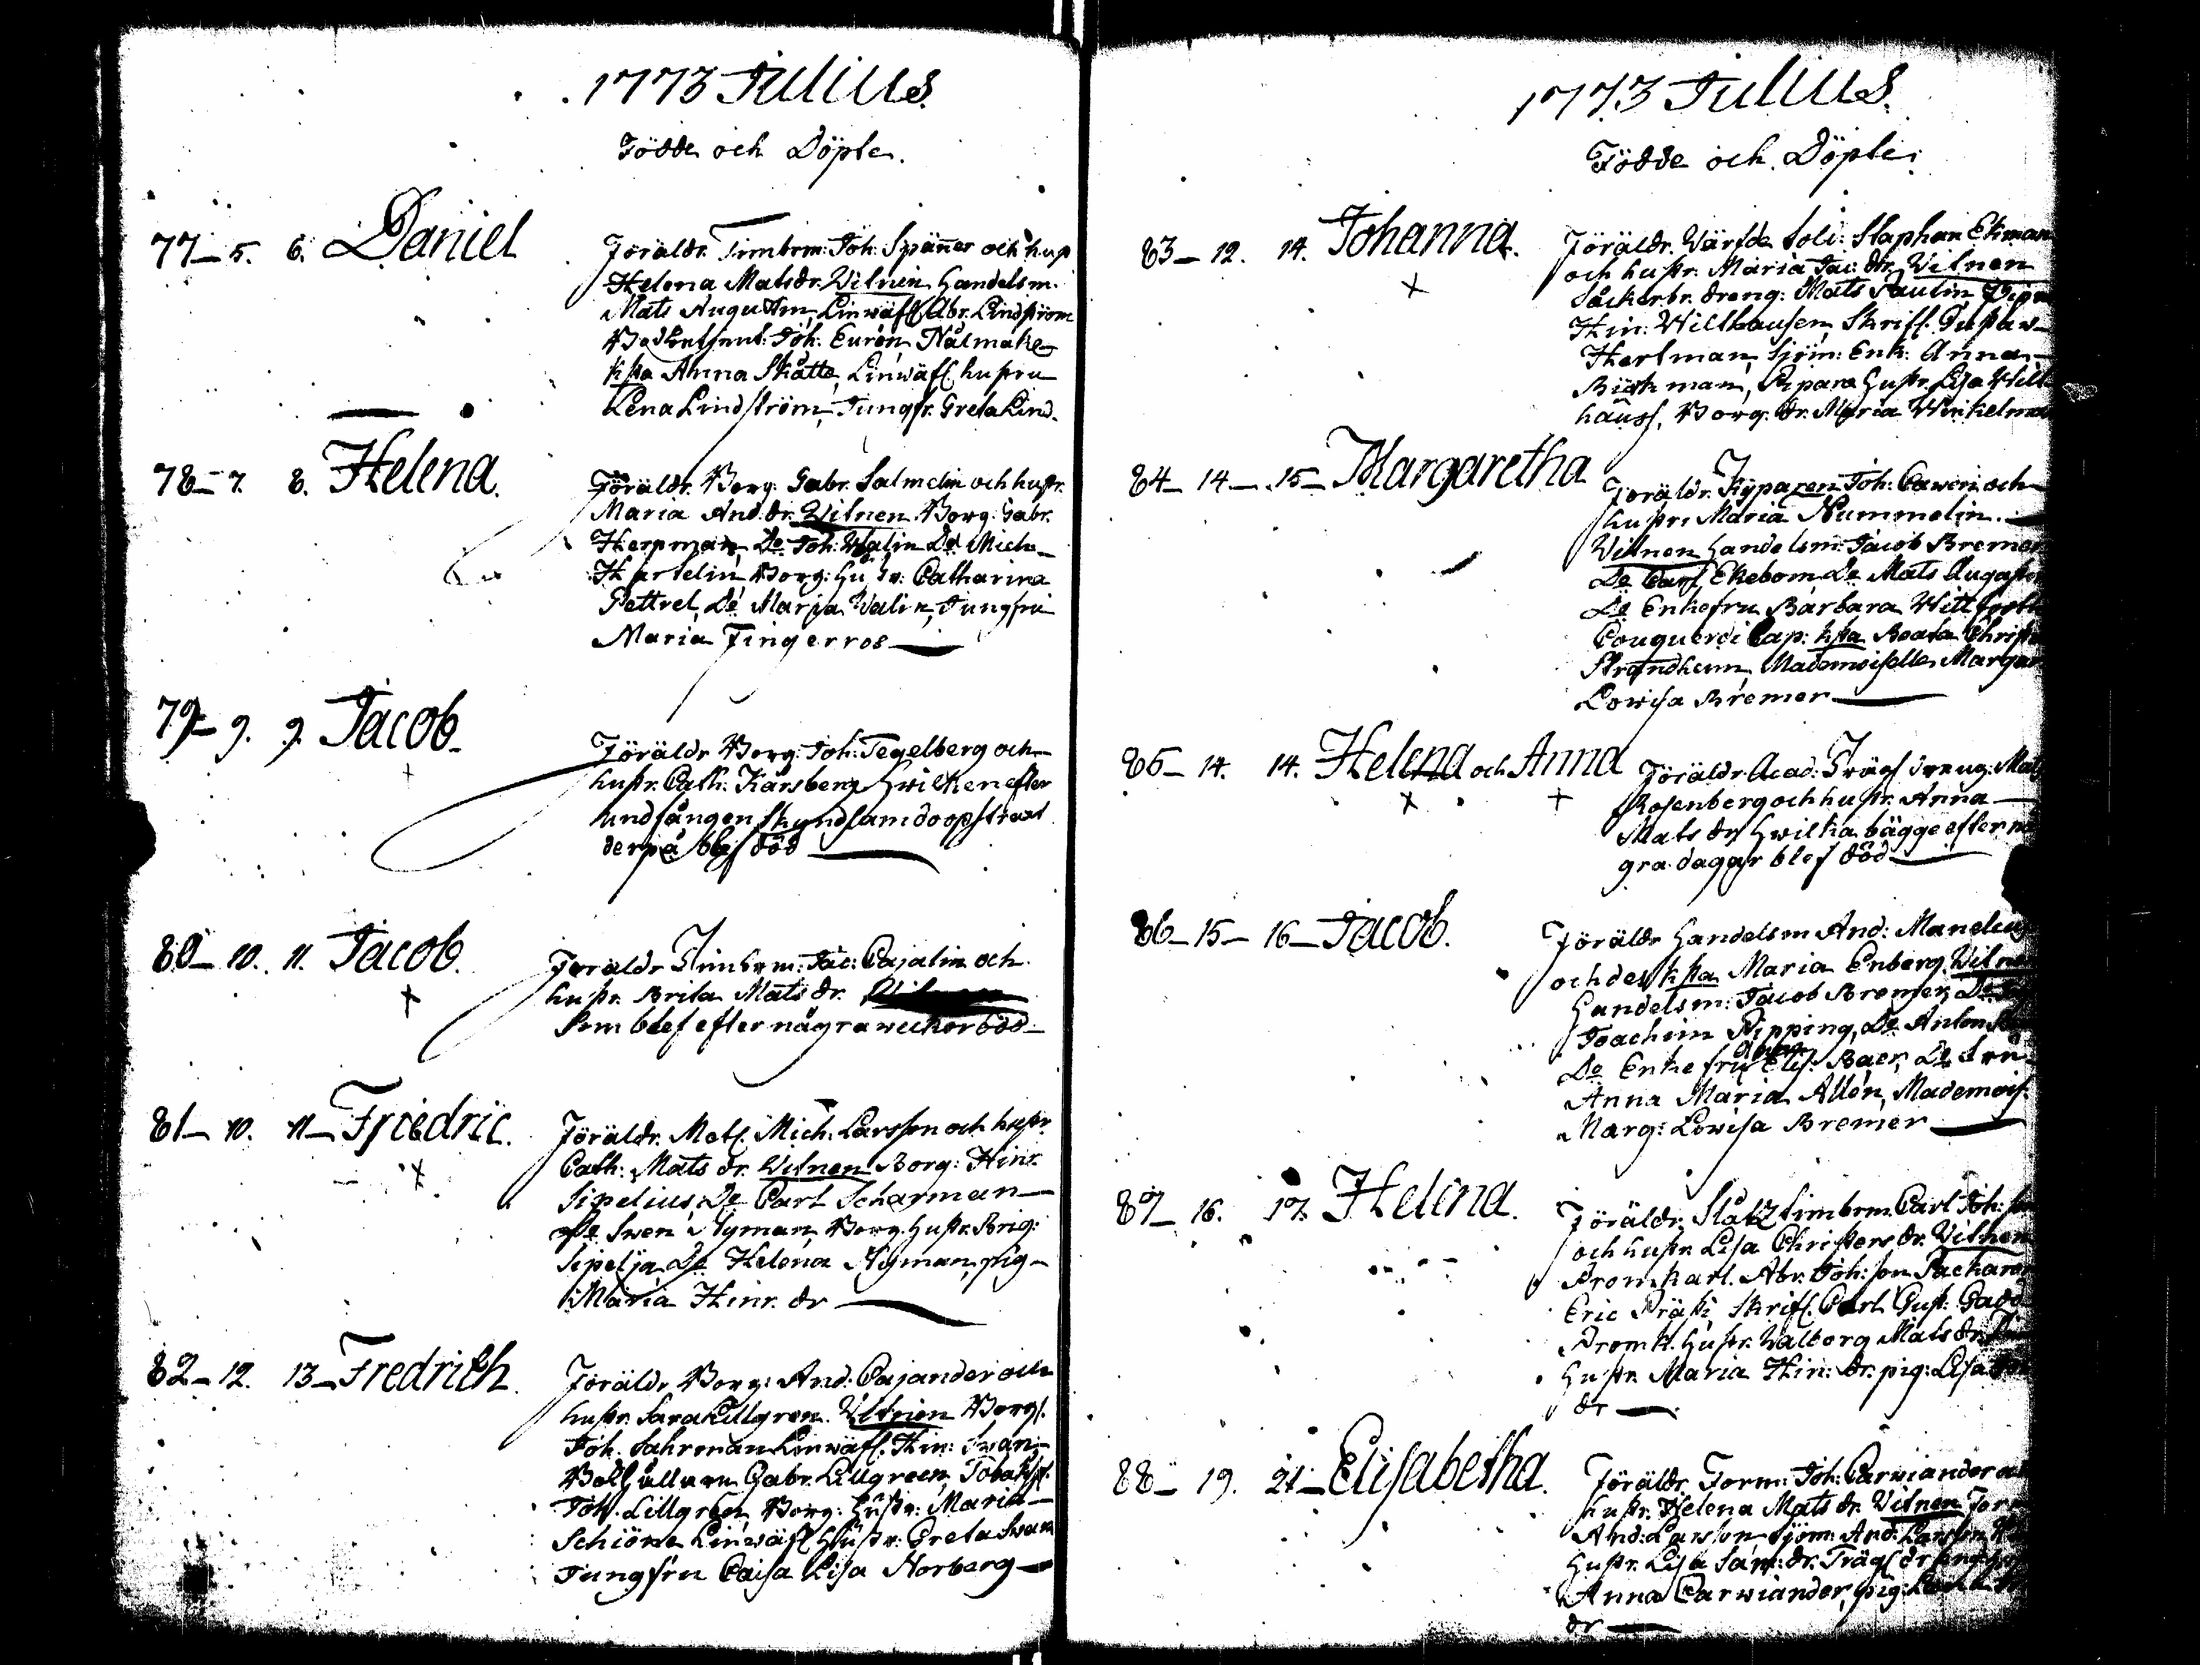 1773 Julius.
Födde och Döpte.
77 5. 6. Daniel
Föräldr. Timberm: Joh: Spänner och hust
Helena Matsdr. Witnen Handelsm.
Mats Augustin, Linwäf. Abr. Lindström
Joh. Eurén Nålmake
Anna Skåtte, Linwäf. hustru
Lena Lindström, Jungfr. Greta Lind.
78 7. 8. Helena.
Föräldr. Borg: Gabr. Salmelin och hustr.
Maria And. dr. Witnen Borg: Gabr.
Herpman, Do Joh: Walin Do Mich.
Hartelin, Borg: Hustr: Catharina
Pettrel, Do Maria Walin, Jungfru
Maria Fingerroos
79 9. 9. Jacob.
Föräldr Borg: Joh: Tegelberg och
hustr. Cath: Kårsberg Hwilken efter
undfången skyndsam doop straxt
derpå blef död
80 10. 11. Jacob.
Föräldr Timberm: Jac: Cajalin och
hustr. Brita Mats dr.
som blef efter några weckor död
81 10. 11 Friedric.
Föräldr. Mich: Larsson och hustr.
Cath: Mats dr. Witnen Borg: Hinr.
Sipelius, Do Carl Scharman
Do Swen Nyman Borg: Hustr. Brig:
Sipelia, Do Helena Nyman, pig
Maria Hinr. dr
82 12. 13 Fredrich
Föräldr Borg: And: Cajander och
hustr. Sara Lillgren. Witnen Borg.
Joh. Linwäf. Hin: Swan
Gabr. Lillgreen,
Joh. Lillgreen, Borg: Hustr: Maria
Schiöne Linwäf Hustr: Greta Swan
Jungfru Caisa Lisa Norberg
1773 Julius.
Födde och Döpte:
83 12. 14. Johanna.
Föräldr. Wärfda Sold: Staphan Ekman
och hustr. Maria Jac: dr. Witnen
Såckerbr. dreng: Mats Paulin
Hin: Wilthausen, Skrif. Gustaw
Hertman, Sjöm: Enk: Anna
Björkman, Hustr. Lisa Wilt
hauss, Borg. dr. Maria Winkelman
84 14 15 Margaretha
Föräldr. Kyparen Joh: Cawén och
hustr: Maria Nummelin.
Witnen Handelsm: Jacob Bremer
Do Carl Ekebom Do Mats
Do Enkefru Barbara Wittfooth
Cap: Beata Christ
Strandheim, Mademoiselle Margar
Lowisa Bremer
85 14. 14. Helena och Anna
Föräldr. Acad: Trägs dreng: Mats
Rosenberg och hustr. Anna
Mats dr. Hwilka bägge efter nå
gra dagar blef död
86 15 16 Jacob.
Föräldr Handelsm And: Manelius
och des Maria Enberg. Witnen
Handelsm: Jacob Bremer, Do
Joachim Pipping, Do Anton
Do Enkefru Elis: Baer, Do Fru
Anna Maria Allén, Mademois.
Marg: Lowisa Bremer
87 16. 17. Helena.
Föräldr. Timberm. Carl Joh:
och hustr. Lisa Christers dr. Witnen
Promkarl. Abr. Joh: son
Eric Skrif. Carl Gust:
Promk. hustr. Walborg Mats dr.
Hustr. Maria Hin: dr. pig: Lisa
dr
88 19. 21 Elisabetha.
Föräldr. Form: Joh: Carwiander och
hustr. Helena Mats dr. Witnen Form
And: Larsson, Sjöm: And: Larsson
hustr. Lisa
Anna Carwiander, pig:
dr